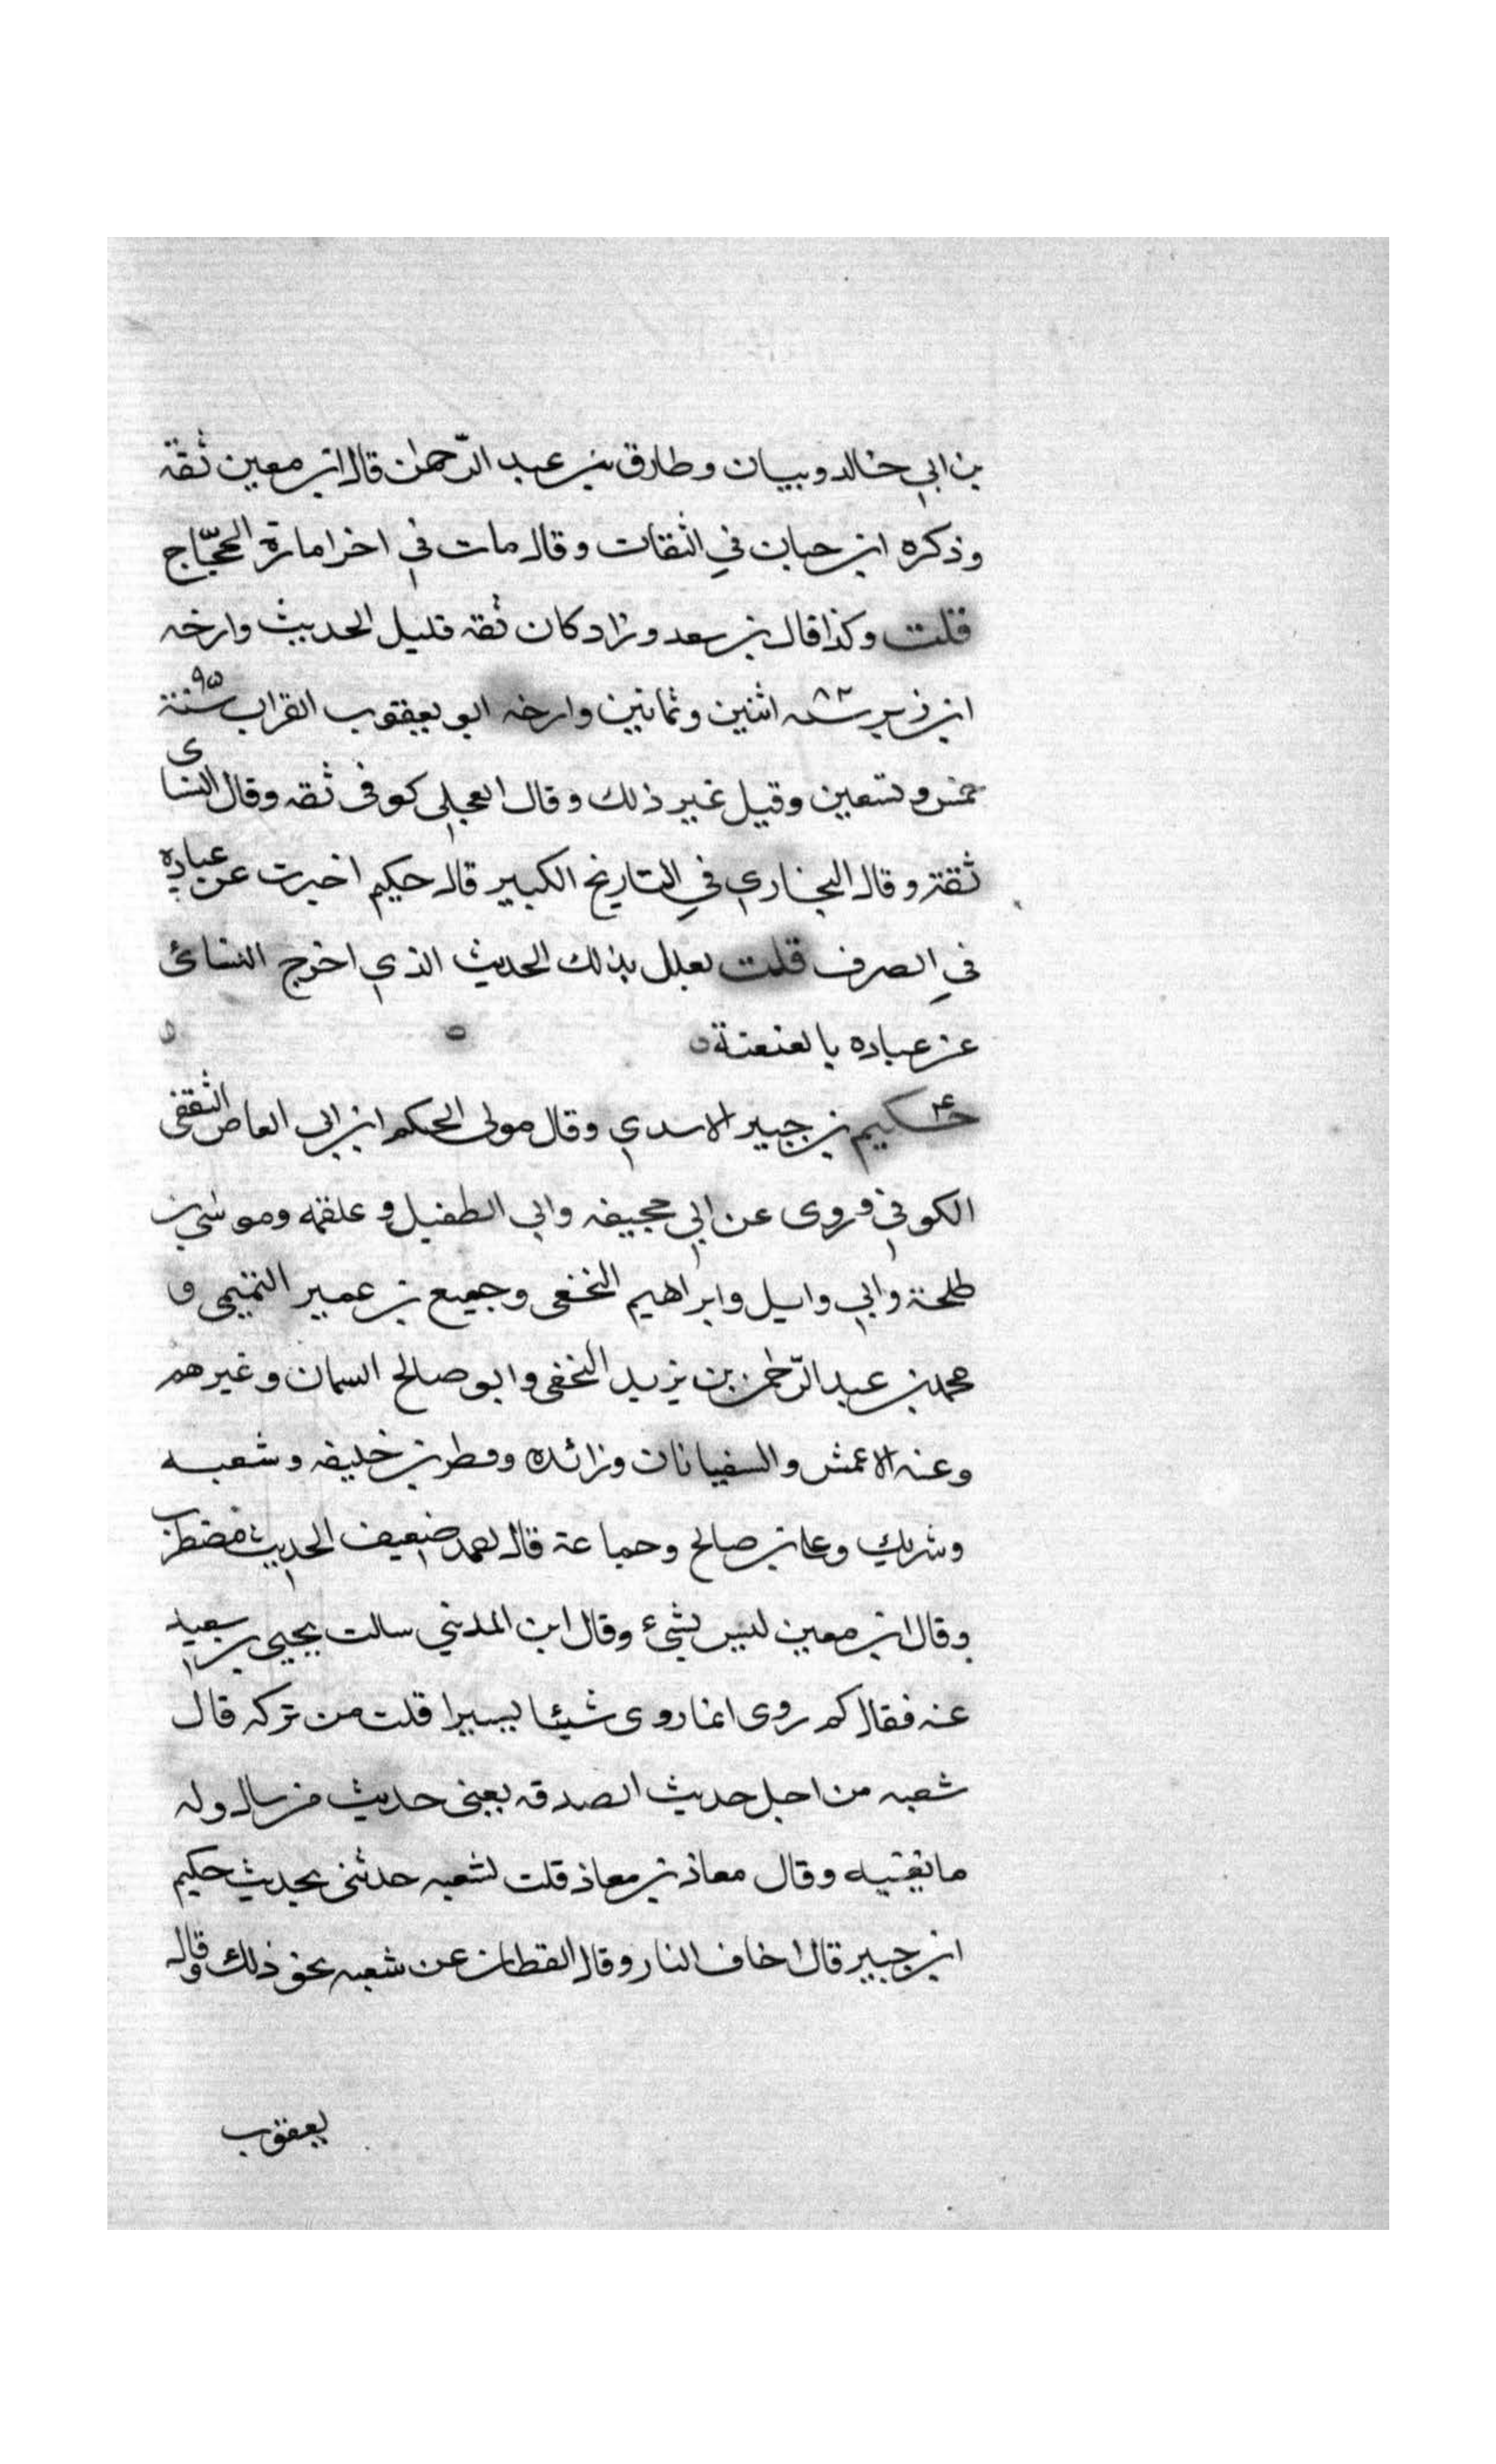 بن ابي خالد وبيان وطارق بن عبد الرّحمٰن قال ابن معين ثقة
وذكره ابن حبان في الثقات وقال مات في اخر امارة الحجّاج
قلت وكذا قال بن سعد وزاد كان ثقه قليل الحديث وارخه
ابن زبر سنه ٨٢ اثنين وثمانين وارخه ابو يعقوب القراب سنة ٩٥
خمس وتسعين وقيل غير ذلك وقال العجلي كوفى ثقه وقال النساى
ثقة وقال البخاري في التاريخ الكبير قال حكيم اخبرت عن عباده
في الصرف قلت يعلل بذلك الحديث الذي اخرج النسائ
عن عباده بالعنعنة
حكيم بن جبير الاسدي وقال مولى الحكم ابن ابى العاص الثقفى
الكوفي وروى عن ابي جحيفه وابي الطفيل وعلقمه وموسى بن
طلحة وابي وايل وابراهيم النخعى وجميع بن عمير التميمى و
محمد بن عبد الرّحمٰن بن يزيد النخعى وابو صالح السمان وغيرهم
وعنه الاعمش والسفيانان وزائده وفطر بن خليفه وشعبه
وشريك وعلى بن صالح وجماعة قال احمد ضعيف الحديث مضطرب
وقال ابن معين ليس بشيء وقال ابن المديني سالت يحيى بن سعيد
عنه فقال كم روى انما روى شيئا يسيرا قلت من تركه قال
شعبه من اجل حديث الصدقه يعنى حديث من سال وله
ما يغنيه وقال معاذ بن معاذ قلت لشعبه حدثنى بحديث حكيم
ابن جبير قال اخاف النار وقال القطان عن شعبه نحو ذلك وقال
يعقوب